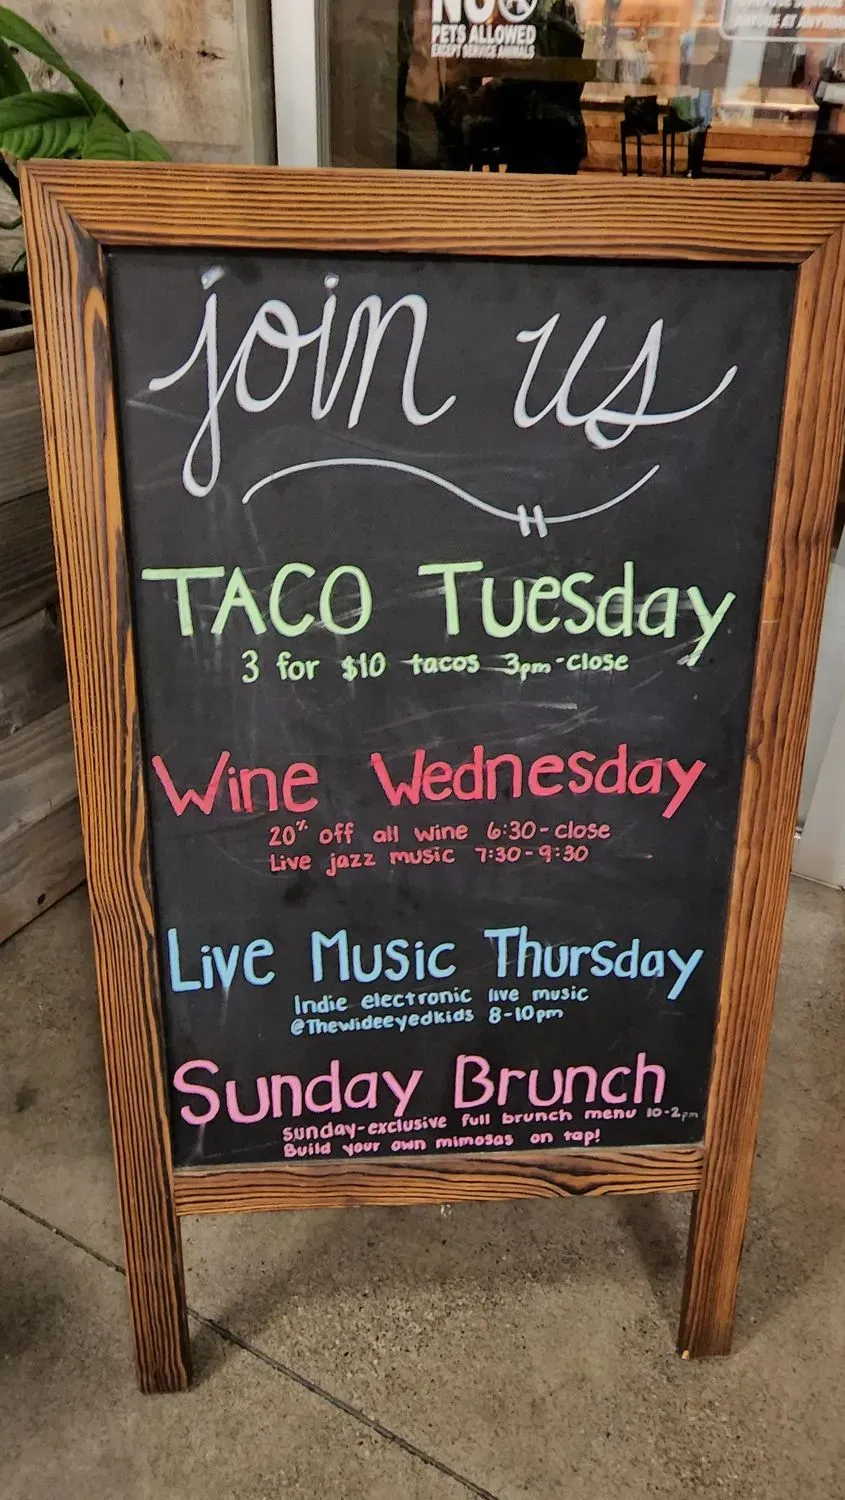 NO
PETS ALLOWED
EXCEPT SERVICE ANIMALS
ANYONE AT ANYTIME
join us
TACO Tuesday
3 for $10 tacos 3pm-close
Wine Wednesday
20% off all wine 6:30-close
Live jazz music 7:30-9:30
Live Music Thursday
Indie electronic live music
@Thewideeyedkids 8-10pm
Sunday Brunch
Sunday-exclusive full brunch menu 10-2pm
Build your own mimosas on tap!